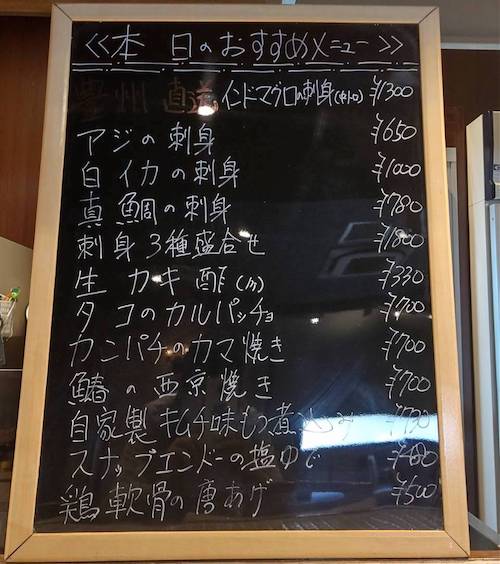 <<本日のおすすめメニュー>>
豊州直送 インドマグロの刺身(中トロ) ¥1300
アジの刺身 ¥650
白イカの刺身 ¥1000
真鯛の刺身 ¥780
刺身3種盛合せ ¥1800
生カキ酢(1ヶ) ¥330
タコのカルパッチョ ¥700
カンパチのカマ焼き ¥700
鰆の西京焼き ¥700
自家製キムチ味もつ煮込み
スナップエンドーの塩ゆで ¥480
鶏軟骨の唐あげ ¥500